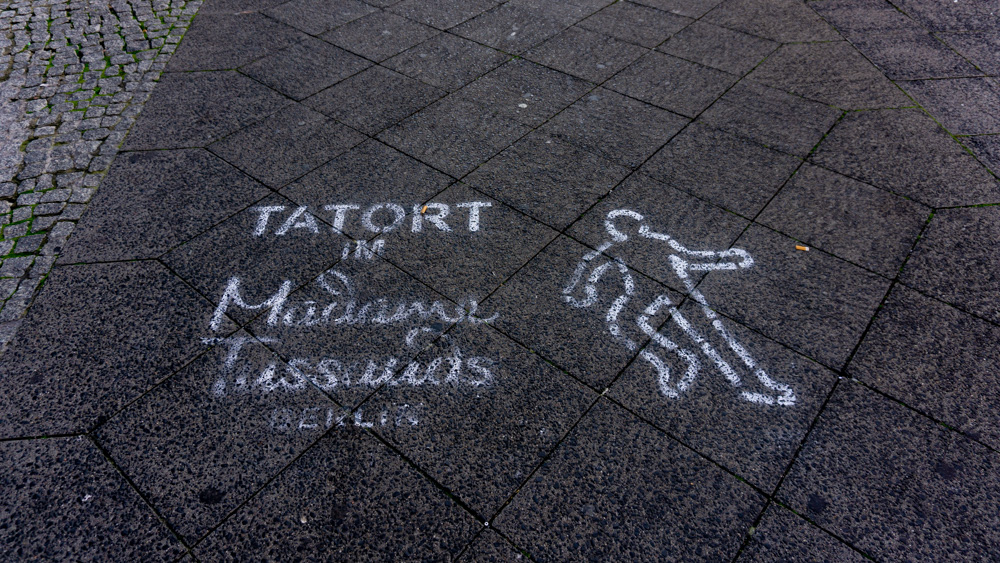 TATORT
IN
Madame
Tussauds
BERLIN